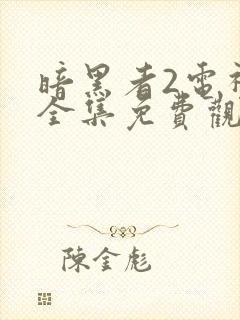 暗黑者2電視
全集免費觀
陳金彪